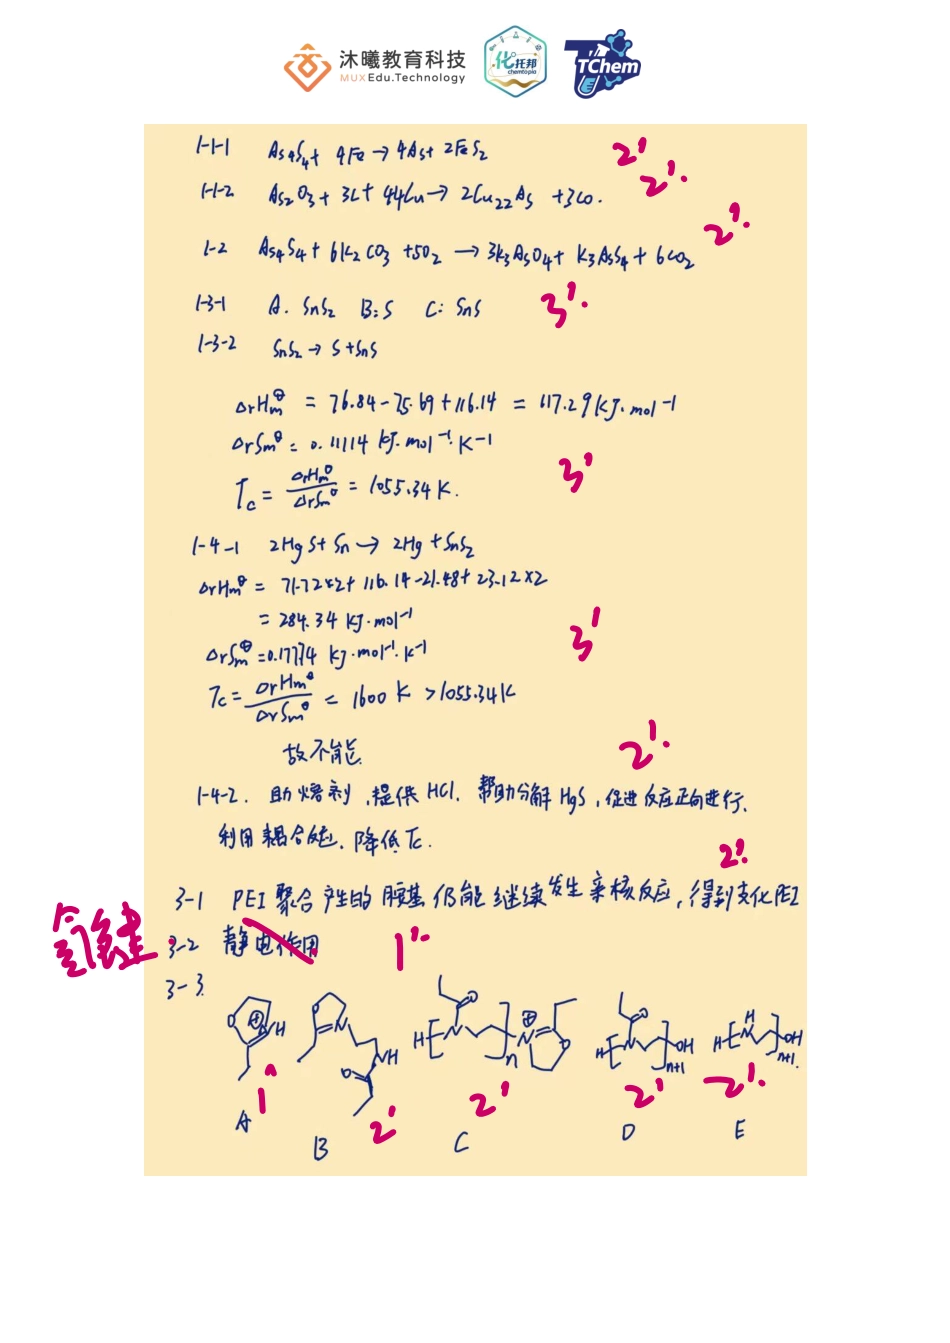 沐曦教育科技
MUXEdu.Technology
化托邦
chemtopia
TChem
1-1-1 As4S4+ 4Fe→4As+ 2FeS2 2'
1-1-2 As2O3+3C+44Cu→2Cu22As +3CO. 2'.
1-2 As4S4+6K2CO3+5O2→3K3AsO4+K3AsS4+6CO2 2'.
1-3-1 A. SnS2 B:S C: SnS 3'.
1-3-2 SnS2→S+SnS
ΔrHm⊖ = 76.84-75.69+116.14 = 117.29 KJ·mol-1
ΔrSm⊖ = 0.11114 KJ·mol-1·K-1
Tc = ΔrHm⊖/ΔrSm⊖ = 1055.34K. 3'
1-4-1 2HgS+Sn→2Hg+SnS2
ΔrHm⊖ = 71.72×2+116.14-21.48+23.12×2
= 284.34 KJ·mol-1
ΔrSm⊖=0.17774 KJ·mol-1·K-1 3'
Tc = ΔrHm⊖/ΔrSm⊖ = 1600 K >1055.34K
故不能. 2'.
1-4-2. 助熔剂,提供HCl. 帮助分解HgS,促进反应正向进行.
利用耦合反应.降低Tc. 2'.
3-1 PEI聚合产生的胺基仍能继续发生亲核反应,得到支化PEI
3-2 静电作用 氢键 1'.
3-3.
O ⊕ NH
O N NH O
H [ N O ] n N ⊕ O
H [ N O ] n+1 OH
H [ N H ] n+1 OH
1' 2' 2' 2' 2'.
A B C D E